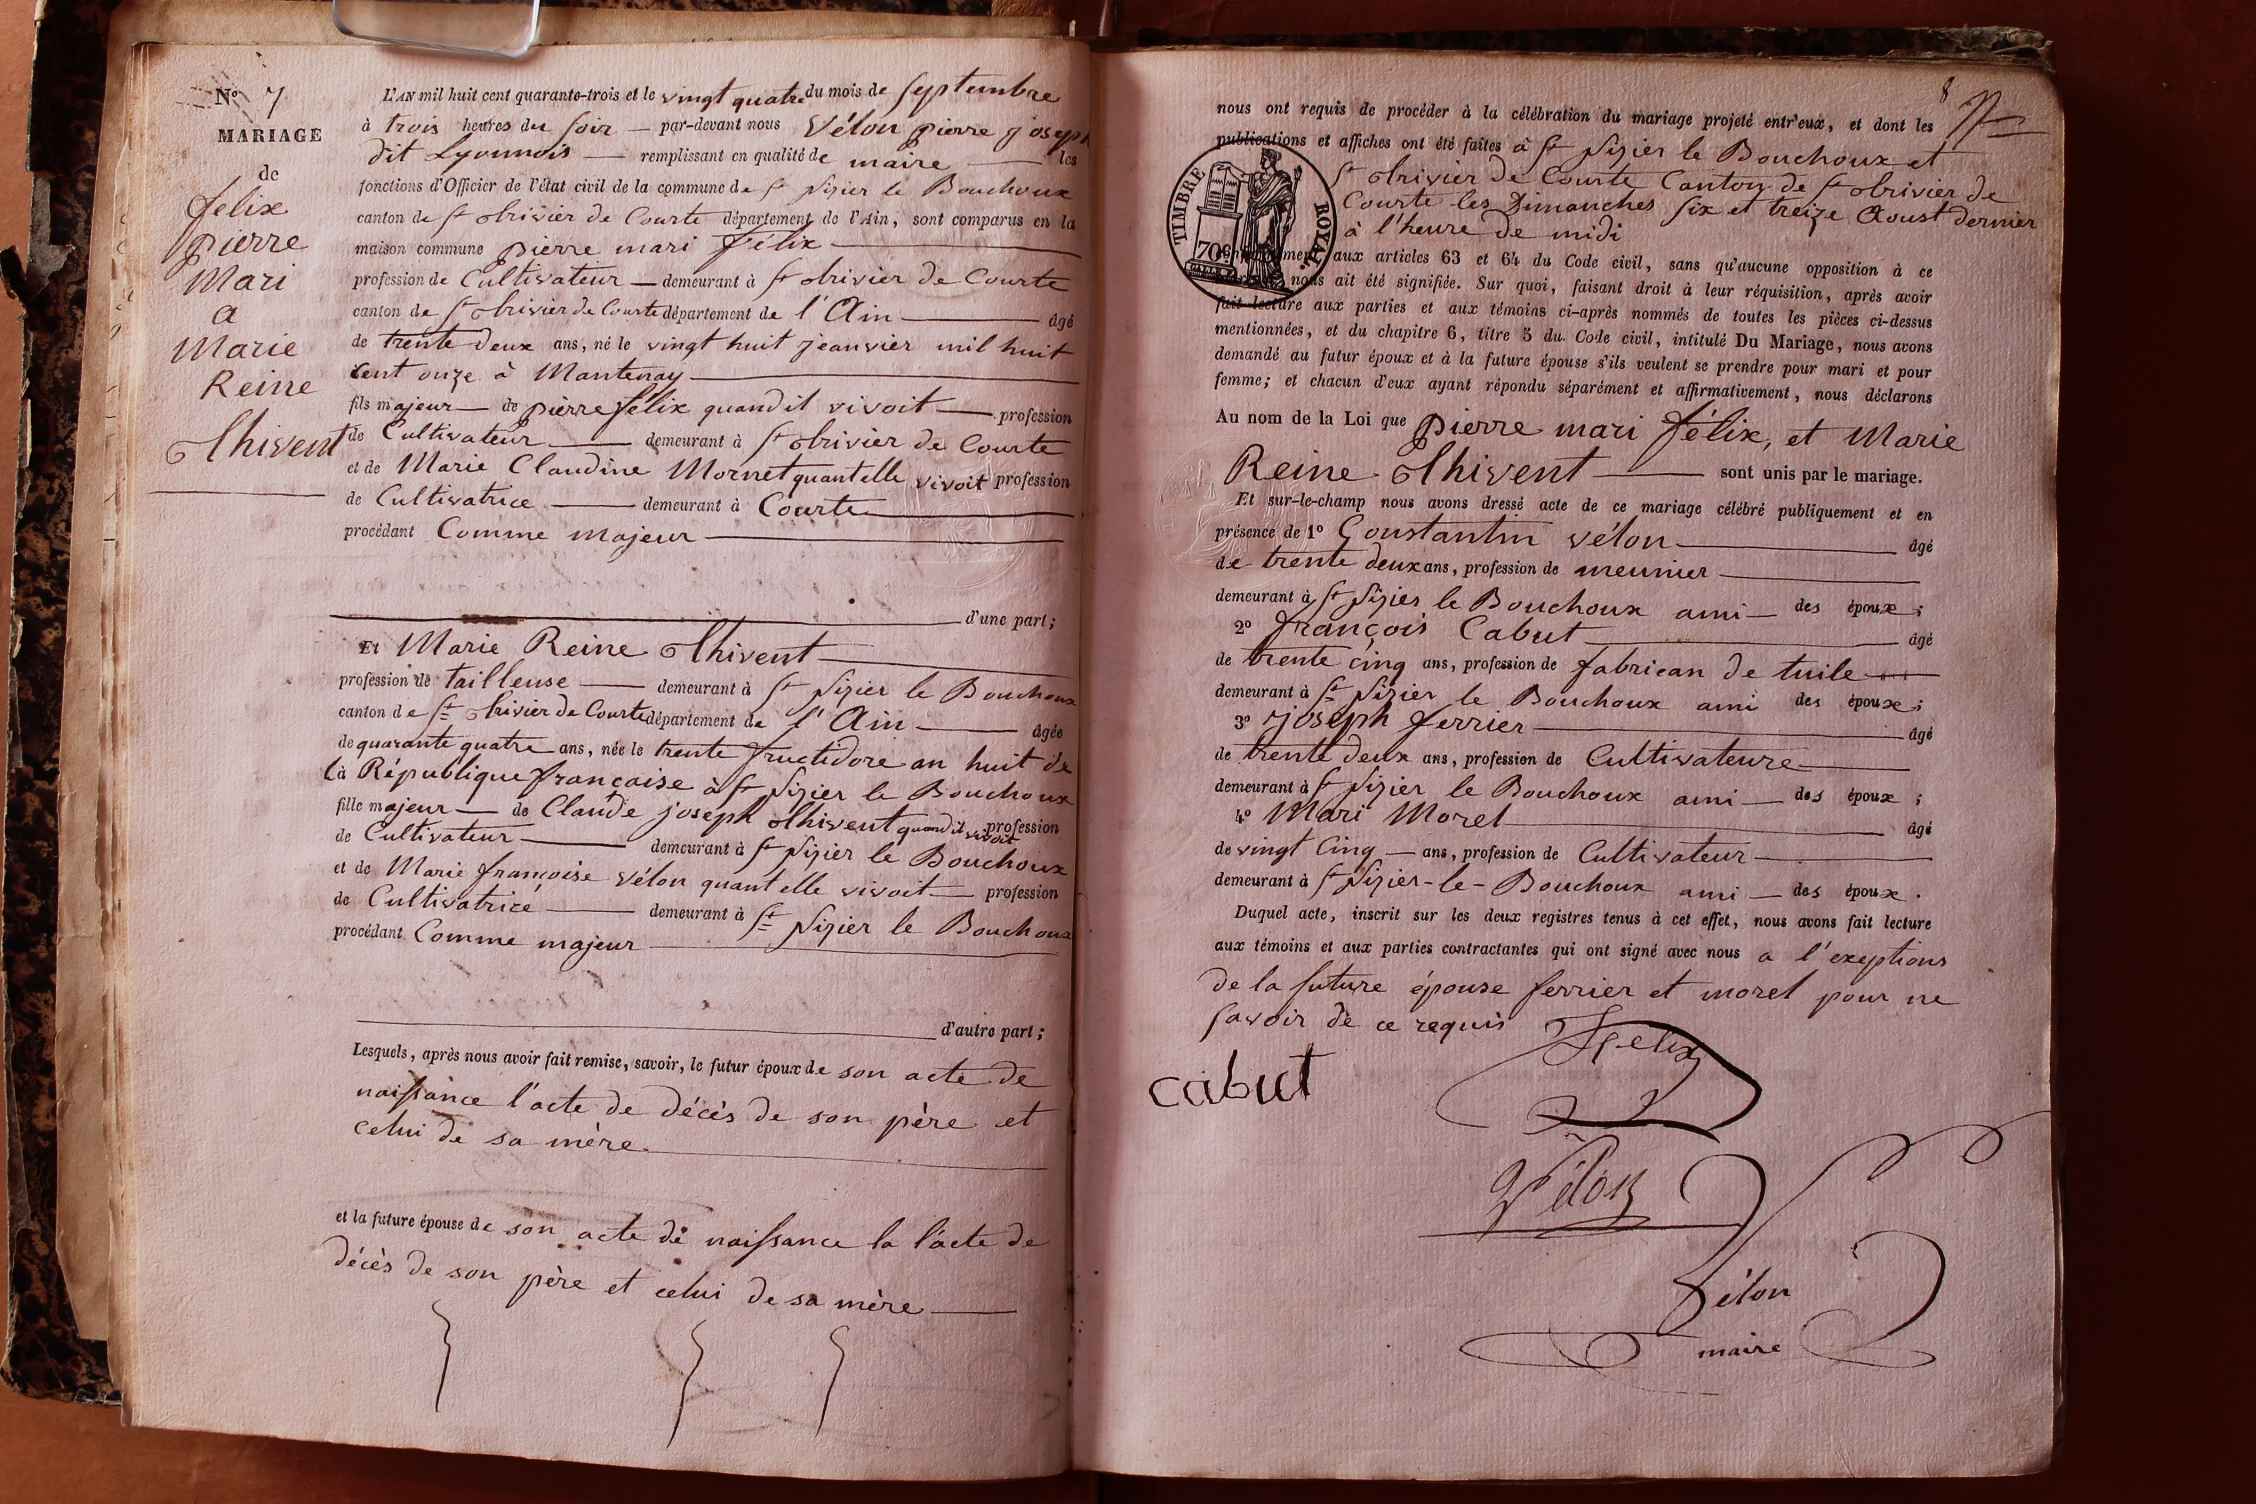 N° 7
MARIAGE
de
félix
pierre
Mari
a
Marie
Reine
Thivent
L'AN mil huit cent quarante-trois et le vingt quatre du mois de Septembre
à trois heures du soir par-devant nous Vélon pierre joseph
dit Lyonnois remplissant en qualité de maire les
fonctions d'Officier de l'état civil de la commune de St Nizier le Bouchoux
canton de St Trivier de Courte département de l'Ain, sont comparus en la
maison commune pierre mari félix
profession de Cultivateur demeurant à St Trivier de Courte
canton de St Trivier de Courte département de l'Ain âgé
de trente deux ans, né le vingt huit jeanvier mil huit
cent onze à Mantenay
fils majeur de pierre félix quand il vivoit profession
de Cultivateur demeurant à St Trivier de Courte
et de Marie Claudine Mornet quant elle vivoit profession
de Cultivatrice demeurant à Courte
procédant Comme majeur
d'une part;
Et Marie Reine Thivent
profession de tailleuse demeurant à St Nizier le Bouchoux
canton de St Trivier de Courte département de l'Ain âgée
de quarante quatre ans, née le trente fructidore an huit de
la République française à St Nizier le Bouchoux
fille majeur de Claude joseph Thivent quand il vivoit profession
de Cultivateur demeurant à St Nizier le Bouchoux
et de Marie françoise Vélon quant elle vivoit profession
de Cultivatrice demeurant à St Nizier le Bouchoux
procédant Comme majeur
d'autre part;
Lesquels, après nous avoir fait remise, savoir, le futur époux de son acte de
naissance l'acte de décès de son père et
celui de sa mère
et la future épouse de son acte de naissance la l'acte de
décès de son père et celui de sa mère
8
nous ont requis de procéder à la célébration du mariage projeté entr'eux, et dont les
publications et affiches ont été faites à St Nizier le Bouchoux et
St Trivier de Courte Canton de St Trivier de
Courte les Dimanches six et treize Aoust dernier
à l'heure de midi
TIMBRE ROYAL.
70c
aux articles 63 et 64 du Code civil, sans qu'aucune opposition à ce
nous ait été signifiée. Sur quoi, faisant droit à leur réquisition, après avoir
fait lecture aux parties et aux témoins ci-après nommés de toutes les pièces ci-dessus
mentionnées, et du chapitre 6, titre 5 du Code civil, intitulé Du Mariage, nous avons
demandé au futur époux et à la future épouse s'ils veulent se prendre pour mari et pour
femme; et chacun d'eux ayant répondu séparément et affirmativement, nous déclarons
Au nom de la Loi que pierre mari félix, et Marie
Reine Thivent sont unis par le mariage.
Et sur-le-champ nous avons dressé acte de ce mariage célébré publiquement et en
présence de 1° Constantin Vélon âgé
de trente deux ans, profession de meunier
demeurant à St Nizier le Bouchoux ami des époux;
2° françois Cabut âgé
de trente cinq ans, profession de fabrican de tuile
demeurant à St Nizier le Bouchoux ami des époux;
3° joseph ferrier âgé
de trente deux ans, profession de Cultivateure
demeurant à St Nizier le Bouchoux ami des époux;
4° Mari Morel âgé
de vingt Cinq ans, profession de Cultivateur
demeurant à St Nizier-le-Bouchoux ami des époux.
Duquel acte, inscrit sur les deux registres tenus à cet effet, nous avons fait lecture
aux témoins et aux parties contractantes qui ont signé avec nous a l'exeptions
de la future épouse ferrier et morel pour ne
savoir de ce requis
felix
cabut
Vélon
Vélon
maire